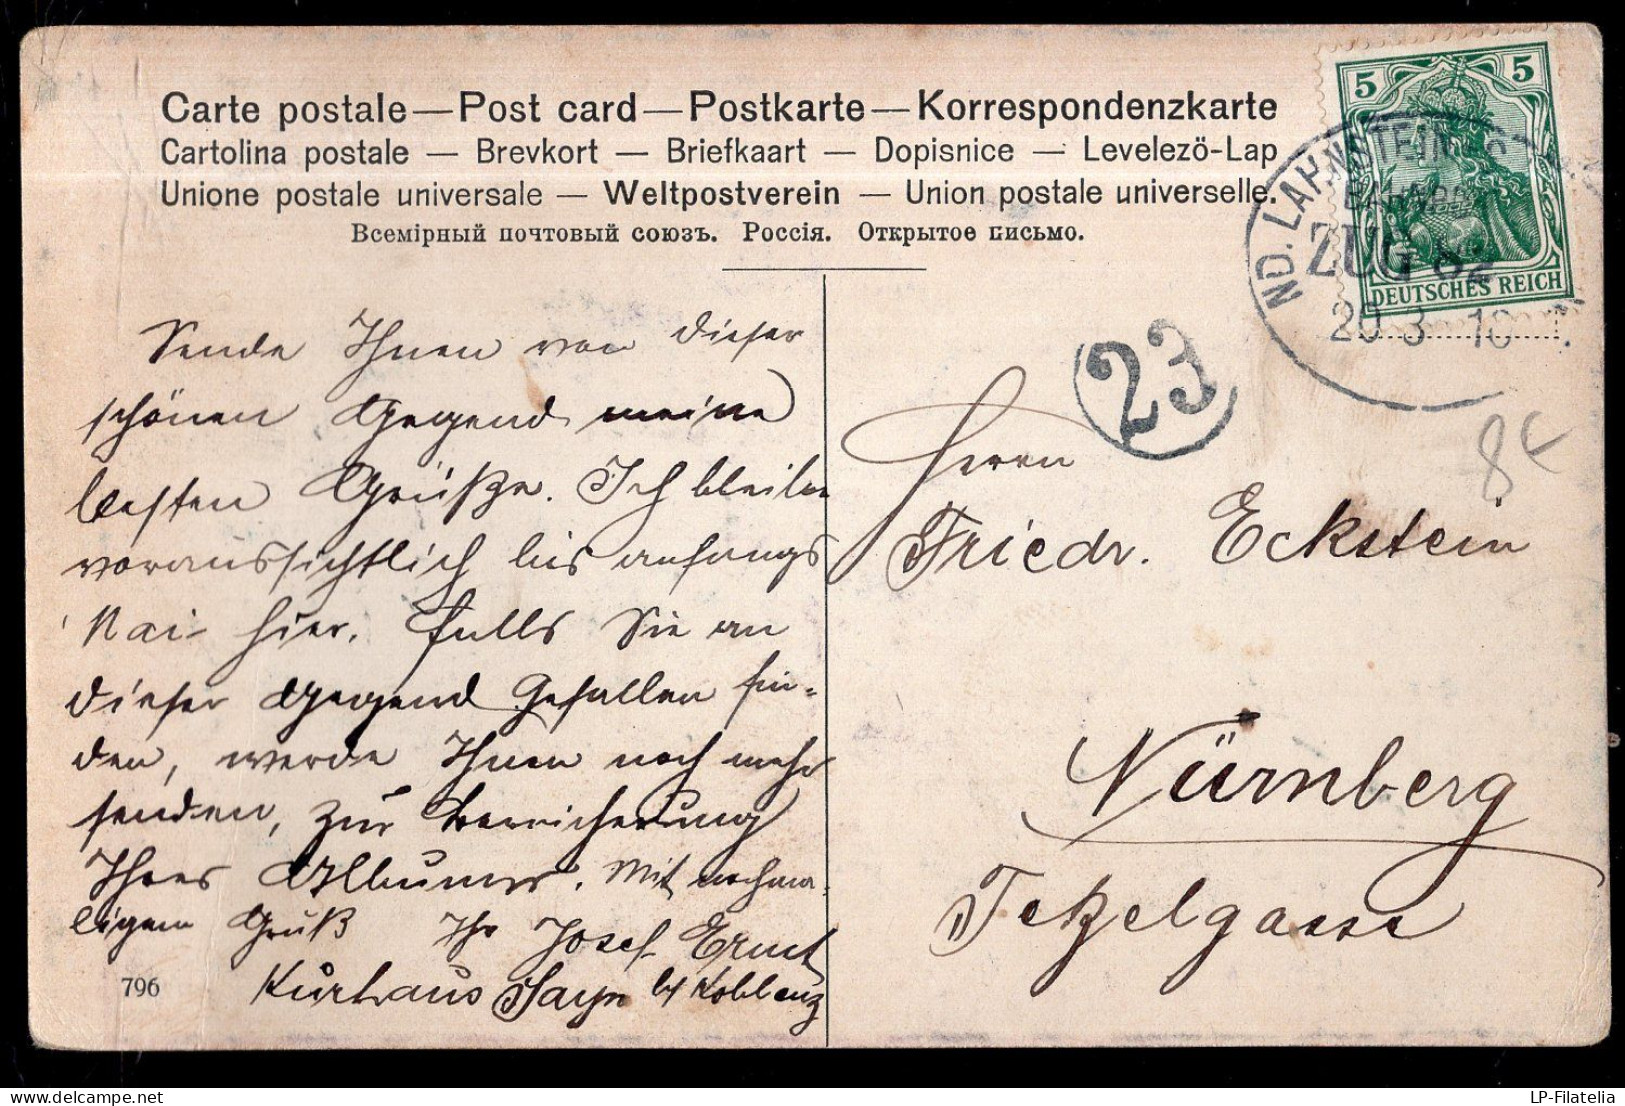 Carte postale — Post card — Postkarte — Korrespondenzkarte
Cartolina postale — Brevkort — Briefkaart — Dopisnice — Levelezö-Lap
Unione postale universale — Weltpostverein — Union postale universelle.
Всемірный почтовый союзъ. Россія. Открытое письмо.
5 5
DEUTSCHES REICH
ND. LAHNSTEIN
BAHNP
ZUG 82
20 3 10
23
8€
Sende Ihnen von dieser
schönen Gegend meine
besten Grüße. Ich bleibe
voraussichtlich bis anfangs
Mai hier. Falls Sie an
dieser Gegend Gefallen fin-
den, werde Ihnen noch mehr
senden, zur Bereicherung
Ihres Albums. Mit nochma-
ligem Gruß Ihr Josef Ernst
Kurhaus Sayn b/ Koblenz
796
Herrn
Friedr. Eckstein
Nürnberg
Tetzelgasse
LP-Filatelia